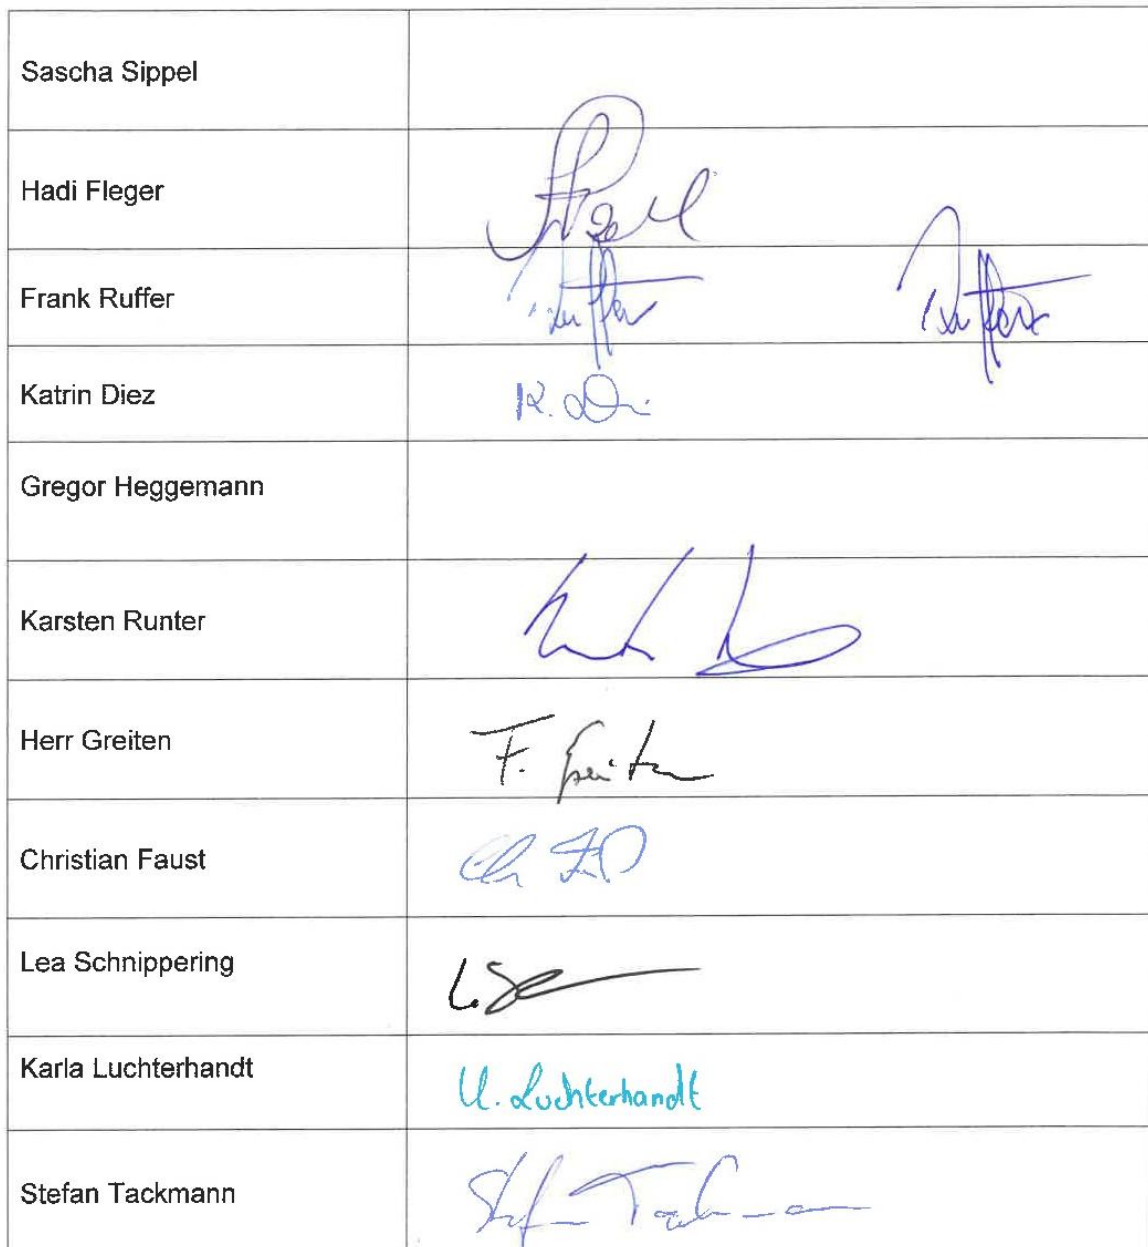 Sascha Sippel
Hadi Fleger
Frank Ruffer
Katrin Diez
K. Di
Gregor Heggemann
Karsten Runter
Herr Greiten
F. Greiten
Christian Faust
Lea Schnippering
Karla Luchterhandt
K. Luchterhandt
Stefan Tackmann
Stefan Tackmann